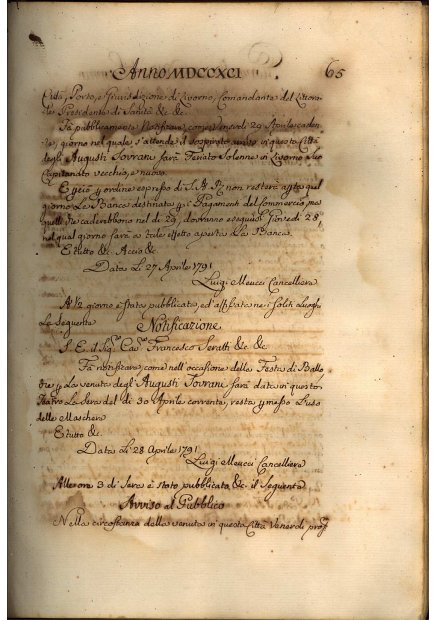 Anno MDCCXCI
65
Città, Porto, e Giurisdizione di Livorno, Comandante del Littora-
le, Presidente di Sanità &c. &c.
Fà pubblicamente Notificare, come Venerdì 29 Aprile caden-
te, giorno nel quale s'attende il sospirato arrivo in questa Città
degli Augusti Sovrani sarà Feriato Solenne in Livorno, suo
Capitanato vecchio, e nuovo.
E perciò p ordine espresso di S. A. R. non resterà apto quel
giorno Le Banco destinato p i Pagamenti del Commercio, ma
quelli che caderebbono nel dì 29, dovranno eseguirsi Giovedì 28
nel qual giorno sarà a tale effetto aperta la Banca.
E tutto &c. Acciò &c.
Data Li 27 Aprile 1791
Luigi Meucci Cancelliere
A 1/2 giorno è stata pubblicata, ed affissata ne i soliti Luoghi
La seguente
Notificazione
S. E. il Sig.r Cav.r Francesco Seratti &c. &c.
Fà notificare, come nell'occasione della Festa di Ballo
che p La venuta degli Augusti Sovrani sarà data in questo
Teatro La Sera del dì 30 Aprile corrente, resta pmesso L'uso
delle Maschere
E tutto &c.
Data Li 28 Aprile 1791
Luigi Meucci Cancelliere
Alle ore 3 di Sera è stato pubblicato &c. il Seguente
Avviso al Pubblico
Nella circostanza della venuta in questa Città Venerdì